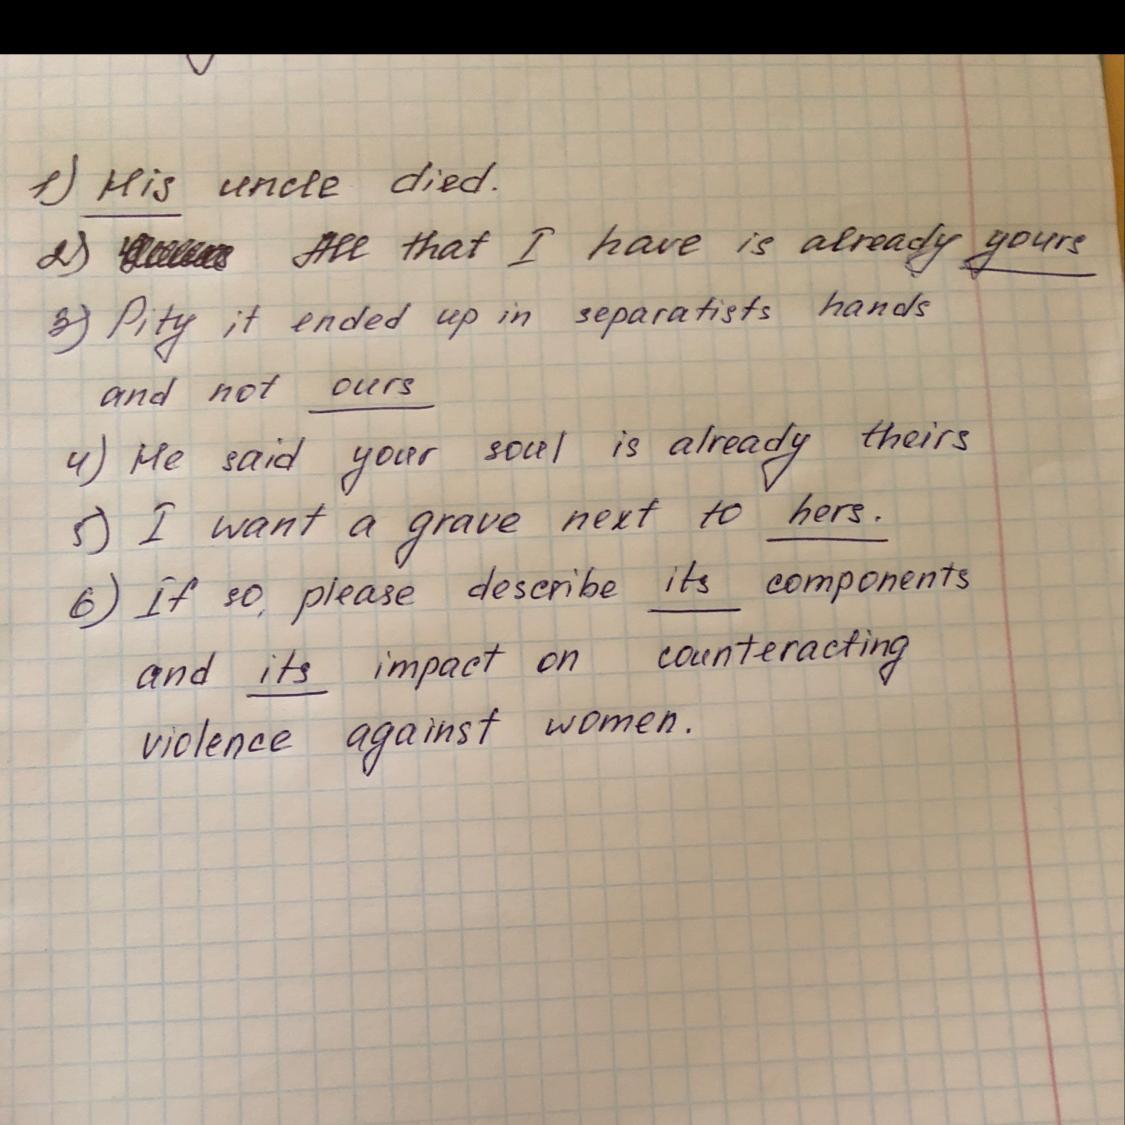 1) His uncle died.
2) All that I have is already yours
3) Pity it ended up in separatists hands
and not ours
4) He said your soul is already theirs
5) I want a grave next to hers.
6) If so, please describe its components
and its impact on counteracting
violence against women.